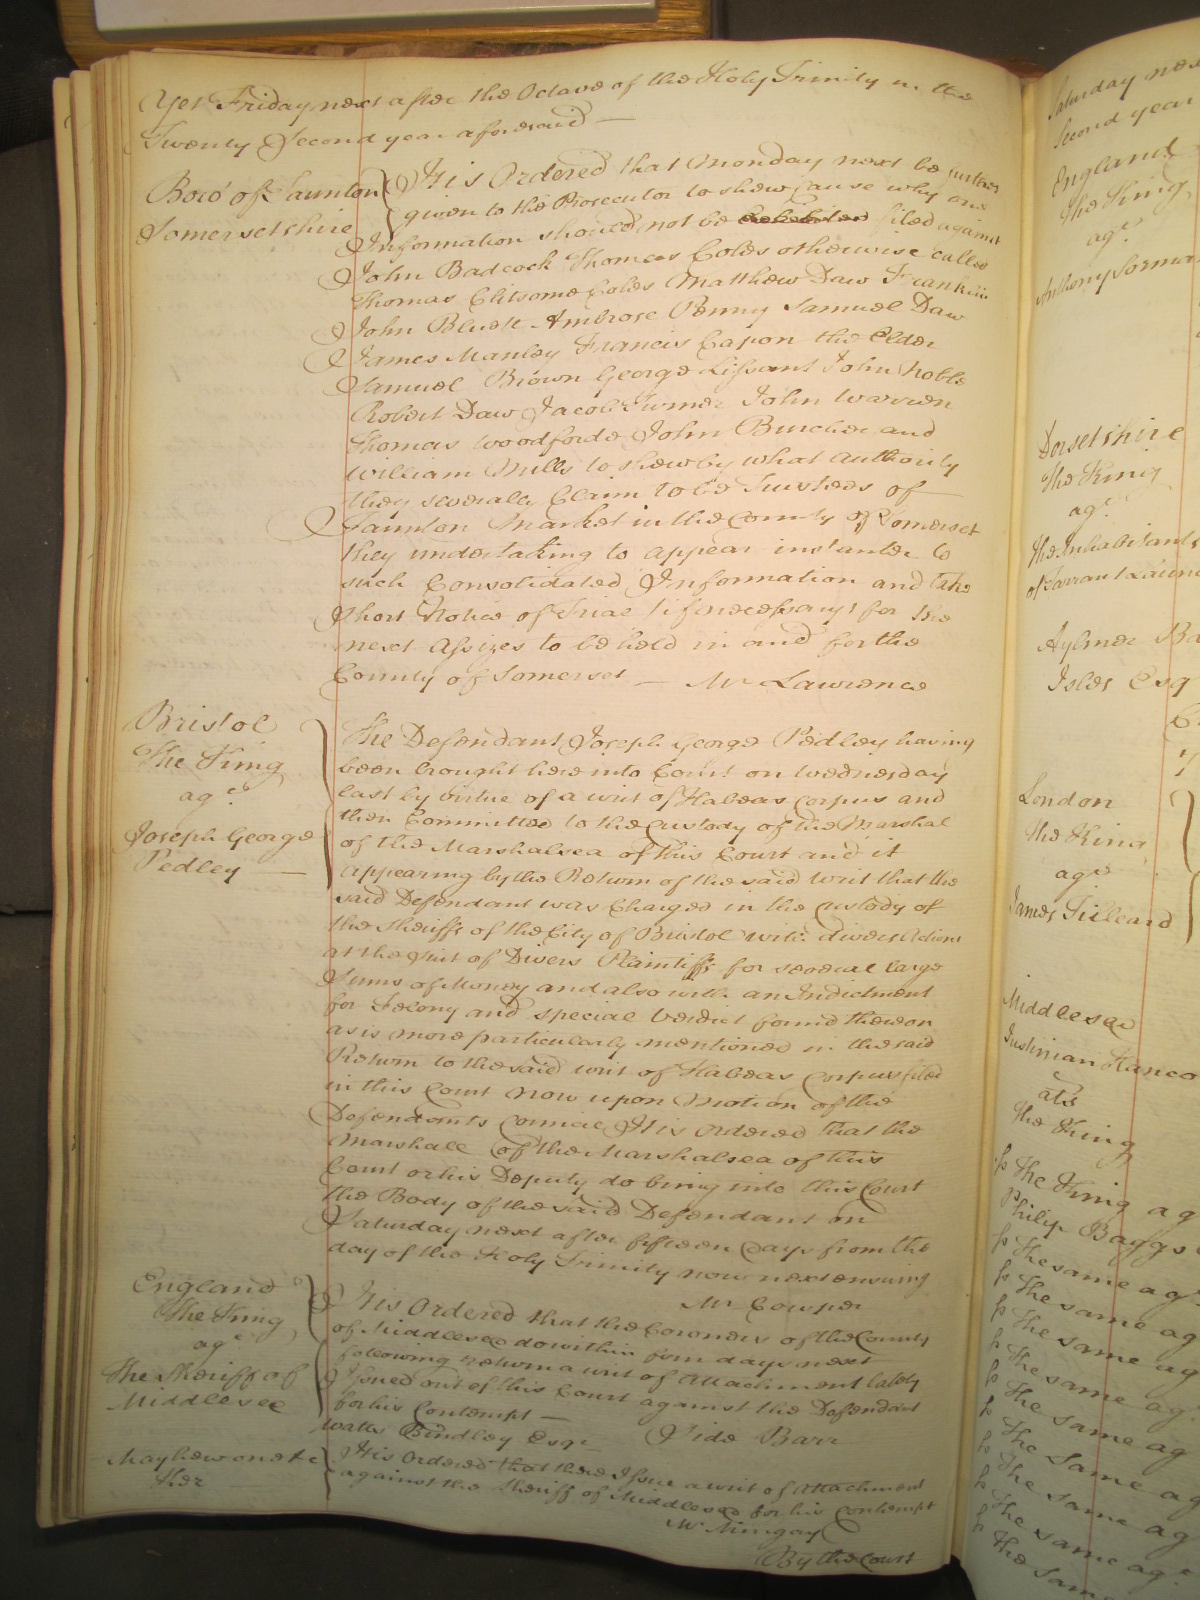 Yet Friday next after the Octave of the Holy Trinity in the
Twenty Second year aforesaid —
Boro' of Taunton
Somersetshire
It is Ordered that Monday next be further
given to the Prosecutor to shew cause why an
Information should not be exhibited filed against
John Badcock Thomas Coles otherwise called
Thomas Clitsome Coles Matthew Daw Franklin
John Bluett Ambrose Penny Samuel Daw
James Manley Francis Capon the Elder
Samuel Brown George Lissant John Noble
Robert Daw Jacob Turner John Warren
Thomas Woodforde John Burcher and
William Mills to shew by what Authority
they severally Claim to be Trustees of
Taunton Market in the County of Somerset
they undertaking to appear instanter to
such Consolidated Information and take
Short Notice of Trial (if necessary) for the
next Assizes to be held in and for the
County of Somerset — Mr Lawrence
Bristol
The King
agt
Joseph George
Pedley —
The Defendant Joseph George Pedley having
been brought here into Court on Wednesday
last by virtue of a writ of Habeas Corpus and
then Committed to the Custody of the Marshal
of the Marshalsea of this Court and it
appearing by the Return of the said writ that the
said Defendant was Charged in the Custody of
the Sheriffs of the City of Bristol with divers Actions
at the Suit of Divers Plaintiffs for several large
Sums of Money and also with an Indictment
for Felony and special Verdict found thereon
as is more particularly mentioned in the said
Return to the said writ of Habeas Corpus filed
in this Court Now upon Motion of the
Defendants Council It is Ordered that the
Marshall of the Marshalsea of this
Court or his Deputy do bring into this Court
the Body of the said Defendant on
Saturday next after fifteen Days from the
day of the Holy Trinity now next ensuing
Mr Cowper
England
The King
agt
The Sheriff of
Middlesex
It is Ordered that the Coroners of the County
of Middlesex do within four days next
following return a writ of Attachment lately
Issued out of this Court against the Defendant
for his Contempt —
Watts Bindley Esqr — Side Barr
Mayhew one &c
ther
It is Ordered that there Issue a writ of Attachment
against the Sheriff of Middlesex for his Contempt
Mr Mingay
By the Court
Saturday nex
Second year
England
The King
agt
Anthony
Dorsetshire
The King
agt
The Inhabitants
of Tarrant
Aylmer Ba
Isles Esq
London
The King
agt
James Tilleard
Middlesex
Justinian
ats
The King
p The King ag
Philip Baggs
p The same agt
p The same ag
p The same ag
p The same agt
p The same ag
p The same ag
p The same ag
p The same agt
p The same